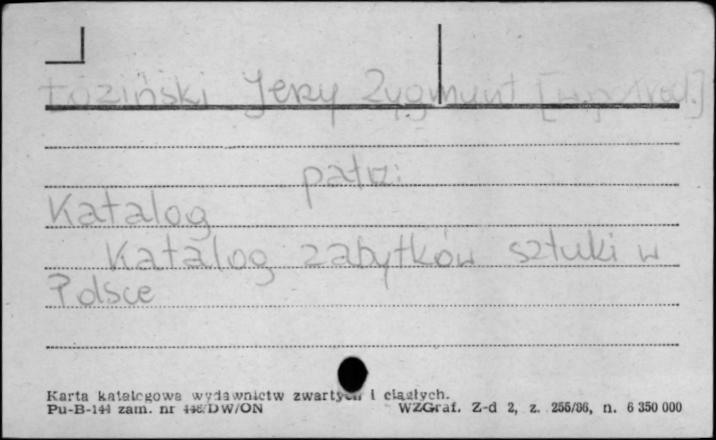 Łoziński Jerzy Zygmunt
patrz:
Katalog
Katalog zabytków sztuki w
Polsce
Karta katalogowa wydawnictw zwartych i ciągłych.
Pu-B-144 zam. nr 448/DW/ON WZGraf. Z-d 2, z. 255/86, n. 6 350 000